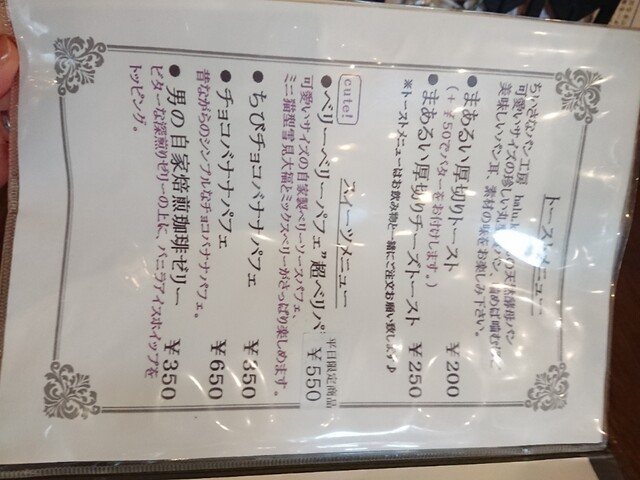 トーストメニュー
ちいさなパン工房 halu.の天然酵母パン
可愛いサイズの珍しい丸パン、噛めば噛むほど
美味しいパン耳、素材の味をお楽しみ下さい。
●まあるい厚切りトースト ￥200
(+￥50でバターをお付けします。)
●まあるい厚切りチーズトースト ￥250
※トーストメニューはお飲み物と一緒にご注文お願い致します♪
スイーツメニュー
cute!
平日限定商品
●ベリーベリーパフェ"超ベリパ ￥550
可愛いサイズの自家製ベリーソースパフェ、
ミニ猫型雪見大福とミックスベリーがさっぱり楽しめます。
●ちびチョコバナナパフェ ￥350
●チョコバナナパフェ ￥650
昔ながらのシンプルなチョコバナナパフェ。
●男の自家焙煎珈琲ゼリー ￥350
ビターな深煎りゼリーの上に、バニラアイスホイップを
トッピング。